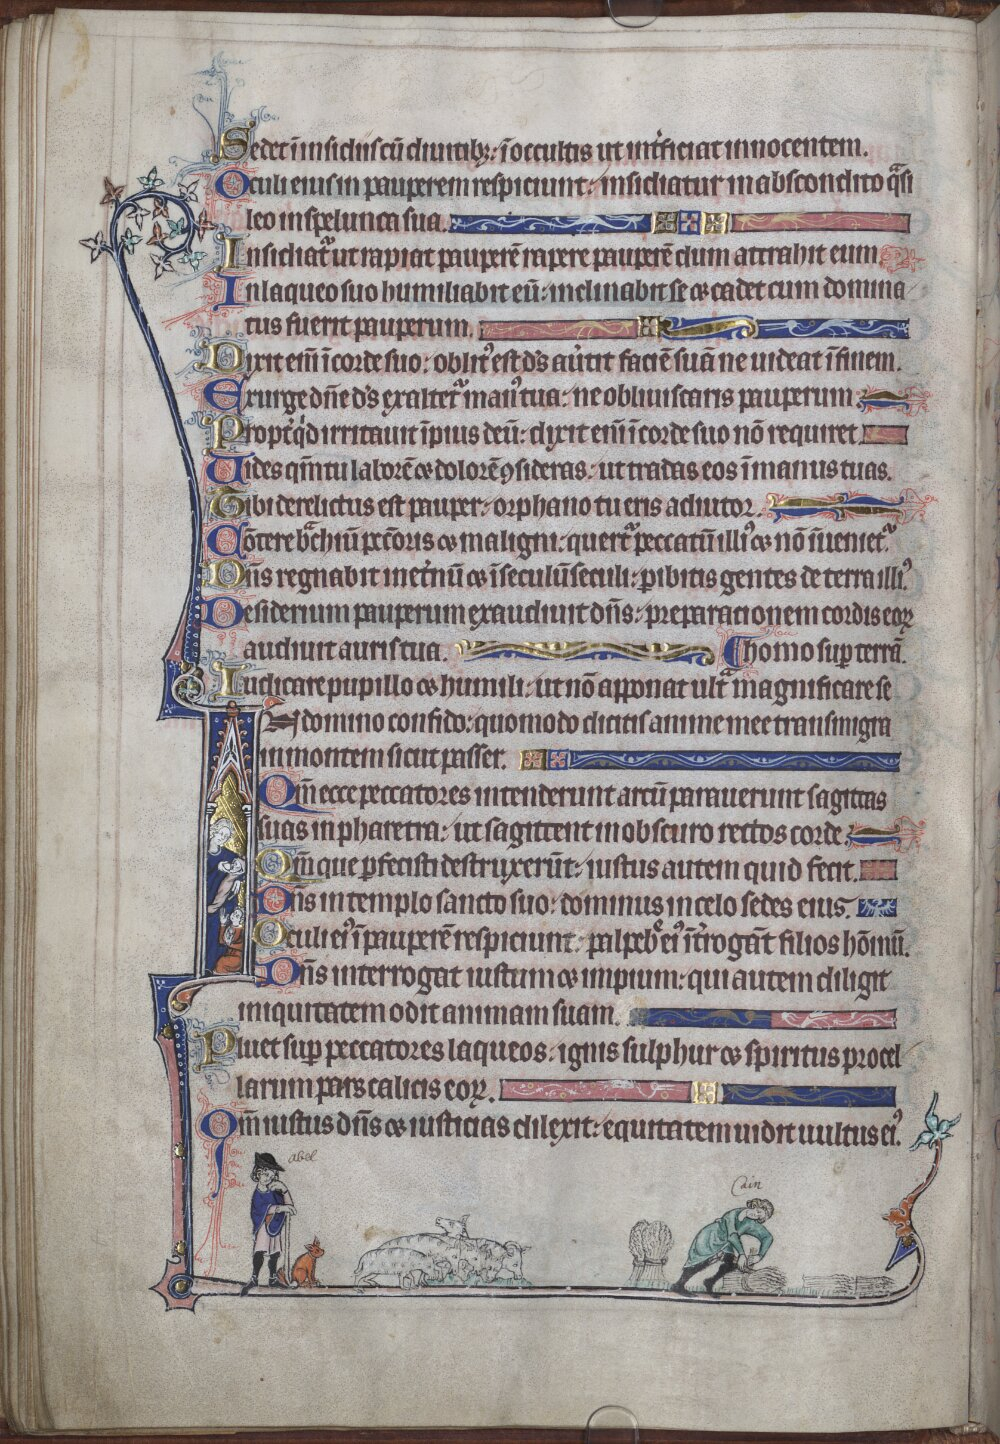 Sedet ī insidiis cū diuitibꝫ: ī occultis ut int̾ficiat innocentem.
Oculi eius in pauperem respiciunt: insidiatur in abscondito q̄si
leo in spelunca sua.
Insidiat᷑ ut rapiat pauperē rapere pauperē dum attrahit eum.
In laqueo suo humiliabit eū: inclinabit se ⁊ cadet cum domina
tus fuerit pauperum.
Dixit em̄ ī corde suo: oblit᷒ est d̄s aūtit faciē suā ne uideat ī finem.
Exurge dn̄e d̄s exaltet᷑ man᷒ tua: ne obliuiscaris pauperum
Propt̾ qͥd irritauit īpius deū: dixit em̄ ī corde suo nō requiret
Uides qm̄ tu laborē ⁊ dolorē ꝯsideras: ut tradas eos ī manus tuas.
Tibi derelictus est pauper: orphano tu eris adiutor.
Cōtere bͣchiū pc̄coris ⁊ maligni: queret᷑ peccatū illi᷒ ⁊ nō īueniet᷑.
Dn̄s regnabit in et̾nū ⁊ ī seculū seculi: ꝑibitis gentes de terra illi᷒
Desiderium pauperum exaudiuit dn̄s: preparacionem cordis eoꝝ
audiuit auris tua. homo suꝑ terrā.
Iudicare pupillo ⁊ humili: ut nō apponat ult᷑ magnificare se
In domino confido: quomodo dicitis anime mee transmigra
in montem sicut passer.
Qm̄ ecce peccatores intenderunt arcū parauerunt sagittas
suas in pharetra: ut sagittent in obscuro rectos corde.
Qm̄ que ꝑfecisti destruxerūt: iustus autem quid fecit.
Dn̄s in templo sancto suo: dominus in celo sedes eius.
Oculi ei᷒ ī pauperē respiciunt: palpebͤ ei᷒ īt̾rogāt filios hōmiū.
Dn̄s interrogat iustum ⁊ impium: qui autem diligit
iniquitatem odit animam suam.
Pluet suꝑ peccatores laqueos: ignis sulphur ⁊ spiritus procel
larum pars calicis eoꝝ.
Qm̄ iustus dn̄s ⁊ iusticias dilexit: equitatem uidit uultus ei᷒.
abel
Cain